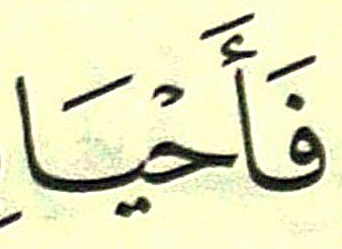 فَأَحْيَا